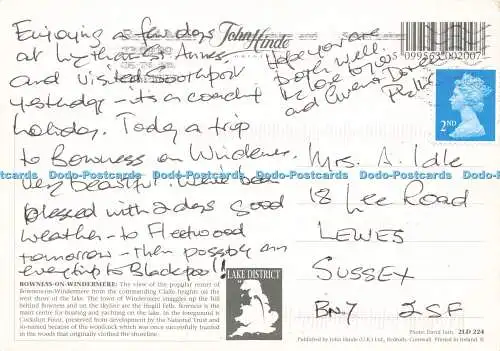 Enjoying a few days
at Lytham St Annes
and visited Southport
yesterday - its a coach
holiday. Today a trip
to Bowness on Windermere.
Very beautiful. We've been
blessed with 2 days good
weather - to Fleetwood
tomorrow - then possibly an
evening trip to Blackpool!
Hope you are
both well.
love to you
and Gwen
John Hinde
5 099563 002007
2ND
Mrs. A. Idle
18 Lee Road
LEWES
SUSSEX
BN7 2SF
Dodo-Postcards Dodo-Postcards Dodo-Postcards Dodo-Postcards Dodo-Postcards
LAKE DISTRICT
BOWNESS-ON-WINDERMERE: The view of the popular resort of
Bowness-on-Windermere from the commanding Claife heights on the
west shore of the lake. The town of Windermere snuggles up the fell
behind Bowness and on the skyline are the Ill Bell Fells. Bowness is the
main centre for boating and yachting on the lake. In the foreground is
Cockshot Point, preserved from development by the National Trust and
so-named because of the woodcock which was once successfully hunted
in the woods that originally clothed the shoreline.
Photo: David 2LD 224
Published by John Hinde (U.K.) Ltd., Redruth, Cornwall. Printed in Ireland.